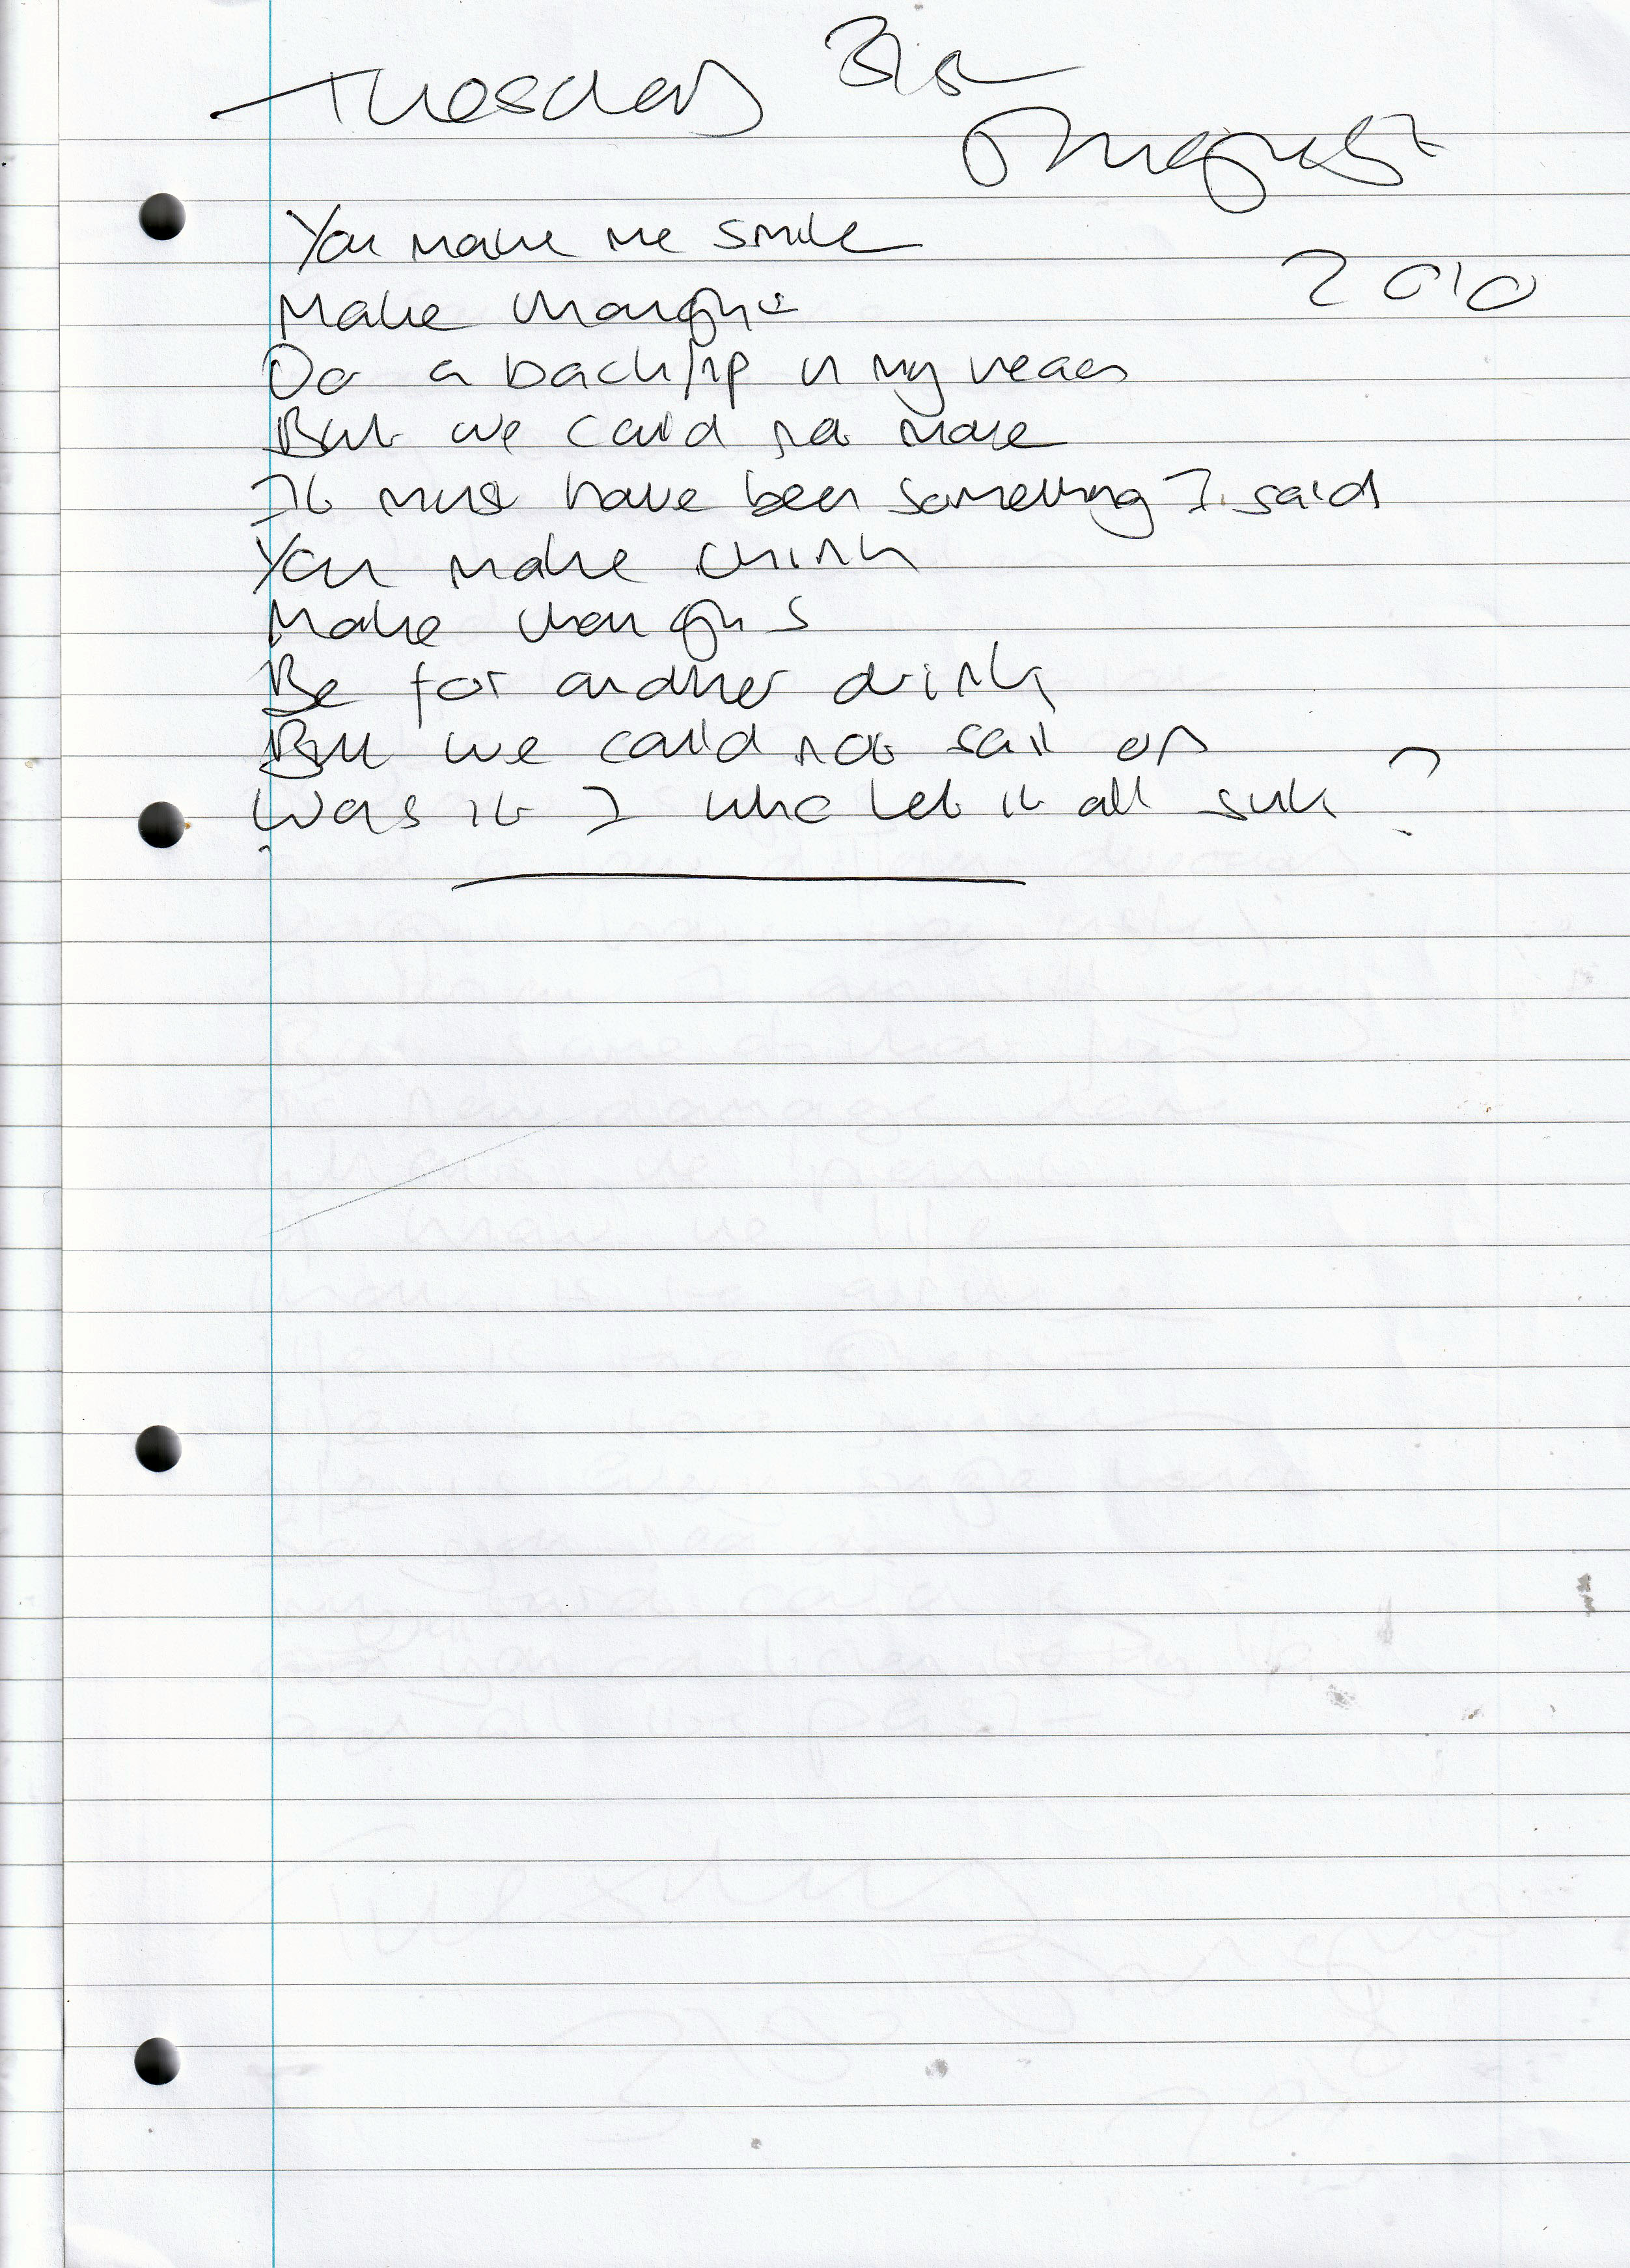 Tuesday 31st
August
2010
You make me smile
Make thoughts
Do a backflip in my head
But we could not make
It must have been something I said
You make think
Make thoughts
Be for another drink
But we could not sail on
Was it I who let it all sink?